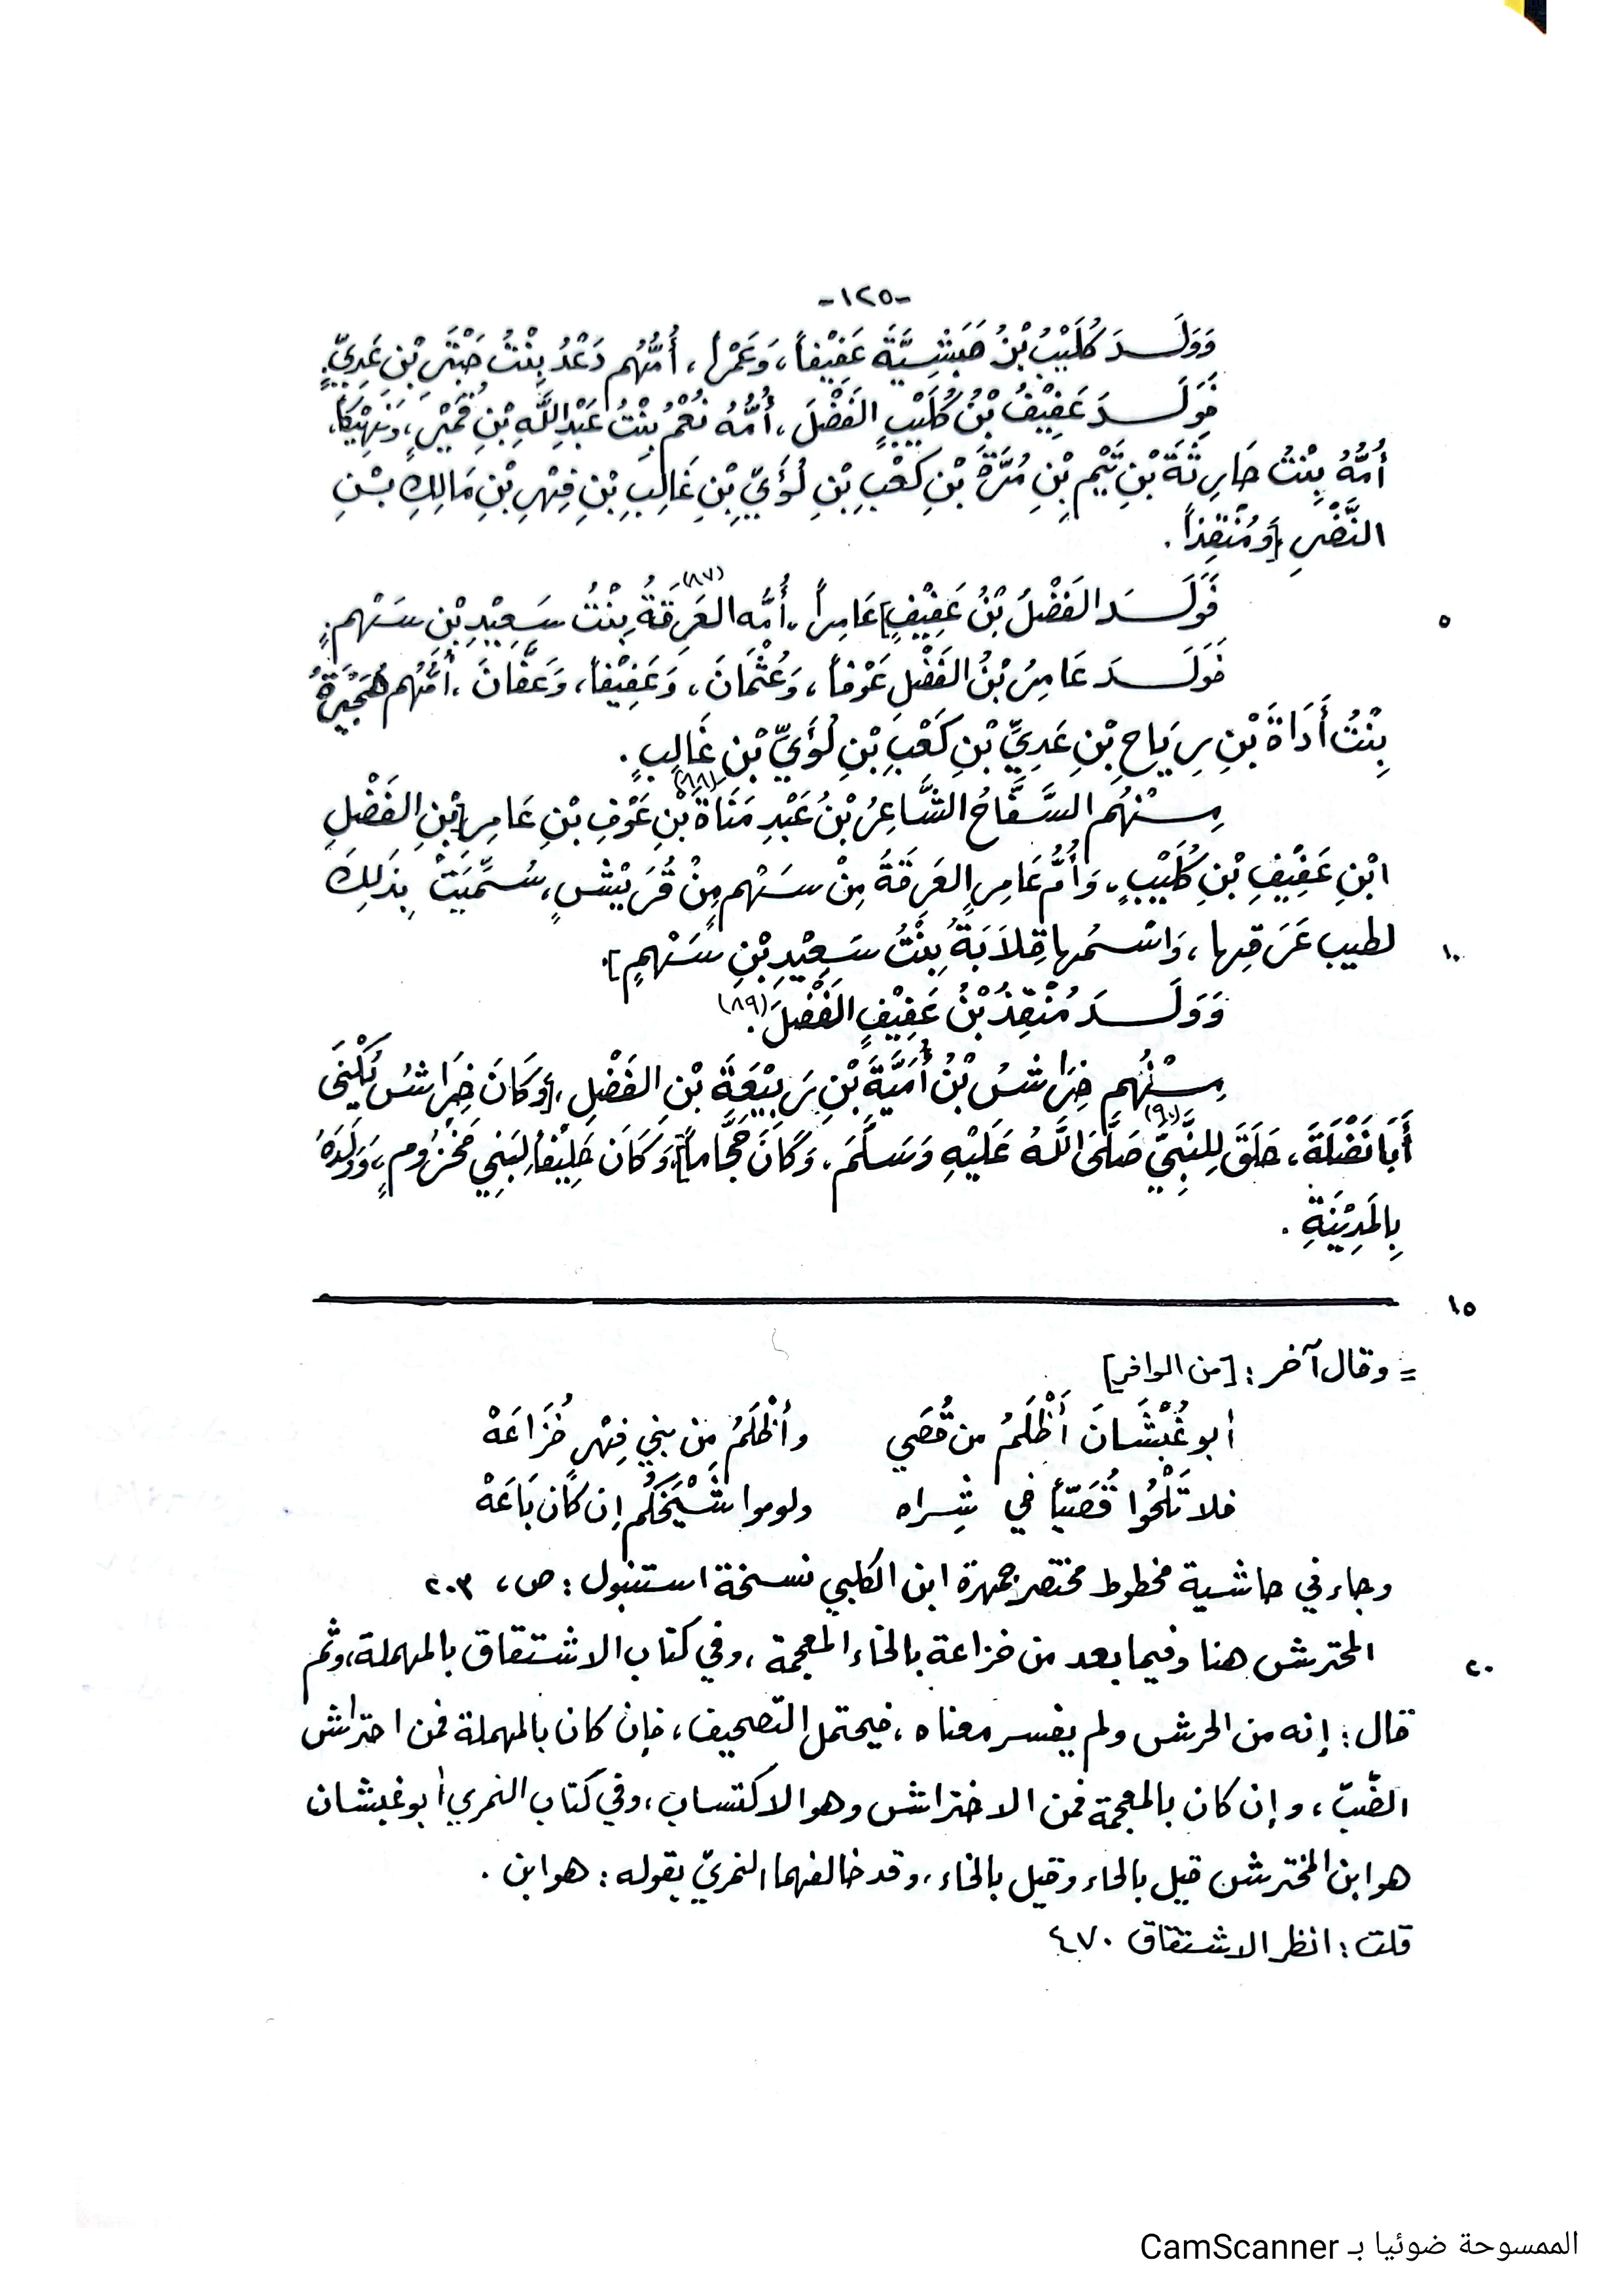 -١٢٥-
وَوَلَــدَ كُلَيْبُ بْنُ حَبَشِيَّةَ عَفِيْفاً، وَعَمْراً، أُمُّهُم دَعْدُ بِنْتُ حَبْتَرِ بْنِ عَدِيٍّ.
فَوَلَــدَ عَفِيْفُ بْنُ كُلَيْبٍ الفَضْلَ، أُمُّهُ نُعْمُ بِنْتُ عَبْدِ اللَّهِ بْنِ قُمَيْرٍ، وَنَهِيْكاً،
أُمُّهُ بِنْتُ حَارِثَةَ بْنِ تَيْمِ بْنِ مُرَّةَ بْنِ كَعْبِ بْنِ لُؤَيِّ بْنِ غَالِبِ بْنِ فِهْرِ بْنِ مَالِكِ بْـنِ
النَّضْرِ [وَمُنْقِذاً.
٥
فَوَلَــدَ الفَضْلُ بْنُ عَفِيْفٍ] عَامِراً، أُمُّه العَرِقَةُ (٨٧) بِنْتُ سَعِيْدِ بْنِ سَهْمٍ.
فَوَلَــدَ عَامِرُ بْنُ الفَضْلِ عَوْفاً، وَعُثْمَانَ، وَعَفِيْفاً، وَعَفَّانَ، أُمُّهُم هُجَيْرَةُ
بِنْتُ أَدَاةَ بْنِ رِيَاحِ بْنِ عَدِيِّ بْنِ كَعْبِ بْنِ لُؤَيِّ بْنِ غَالِبٍ.
مِـنْهُم السَّفَّاحُ الشَّاعِرُ بْنُ عَبْدِ مَنَاةَ (٨٨) بْنِ عَوْفِ بْنِ عَامِرِ [بْنِ الفَضْلِ
ابْنِ عَفِيْفِ بْنِ كُلَيْبٍ، وَأُمُّ عَامِرٍ العَرِقَةُ مِنْ سَهْمٍ مِنْ قُرَيْشٍ، سُمِّيَتْ بِذَلِكَ
١٠
لطيب عَرَقِها، وَاسْمُها قِلاَبَةُ بِنْتُ سَعِيْدِ بْنِ سَهْمٍ].
وَوَلَــدَ مُنْقِذُ بْنُ عَفِيْفٍ الفَضْلَ (٨٩).
مِـنْهُم خِرَاشُ بْنُ أُمَيَّةَ بْنِ رَبِيْعَةَ بْنِ الفَضْلِ، [وَكَانَ خِرَاشُ يُكْنَى
أَبَا نَضْلَةَ، حَلَقَ لِلنَّبِيِّ (٩٠) صَلَّى اللَّهُ عَلَيْهِ وَسَلَّمَ، وَكَانَ حَجَّاماً]، وَكَانَ حَلِيْفاً لِبَنِي مَخْزُومٍ، وَوَلَدُهُ
بِالمَدِيْنَةِ.
١٥
= وقال آخر: [من الوافر]
أبو غُبْشَانَ أَظْلَمُ من قُصَي وأَظْلَمُ من بني فِهْرٍ خُزَاعَهْ
فلا تَلْحُوا قُصَيّاً في شِراه ولوموا شَيْخَكُم إن كان بَاعَهْ
وجاء في حاشية مخطوط مختصر جمهرة ابن الكلبي نسخة استنبول: ص، ٢٠٣
٢٠
المخترش هنا وفيما بعد من خزاعة بالخاء المعجمة، وفي كتاب الاشتقاق بالمهملة، وثم
قال: إنه من الحرش ولم يفسر معناه، فيحتمل التصحيف، فإن كان بالمهملة فمن احتراش
الضّبّ، وإن كان بالمعجمة فمن الاختراش وهو الاكتساب، وفي كتاب النمري أبو غبشان
هو ابن المخترش قيل بالحاء وقيل بالخاء، وقد خالفهما النمريّ بقوله: هو ابن.
قلت: انظر الاشتقاق ٤٧٠
الممسوحة ضوئيا بـ CamScanner